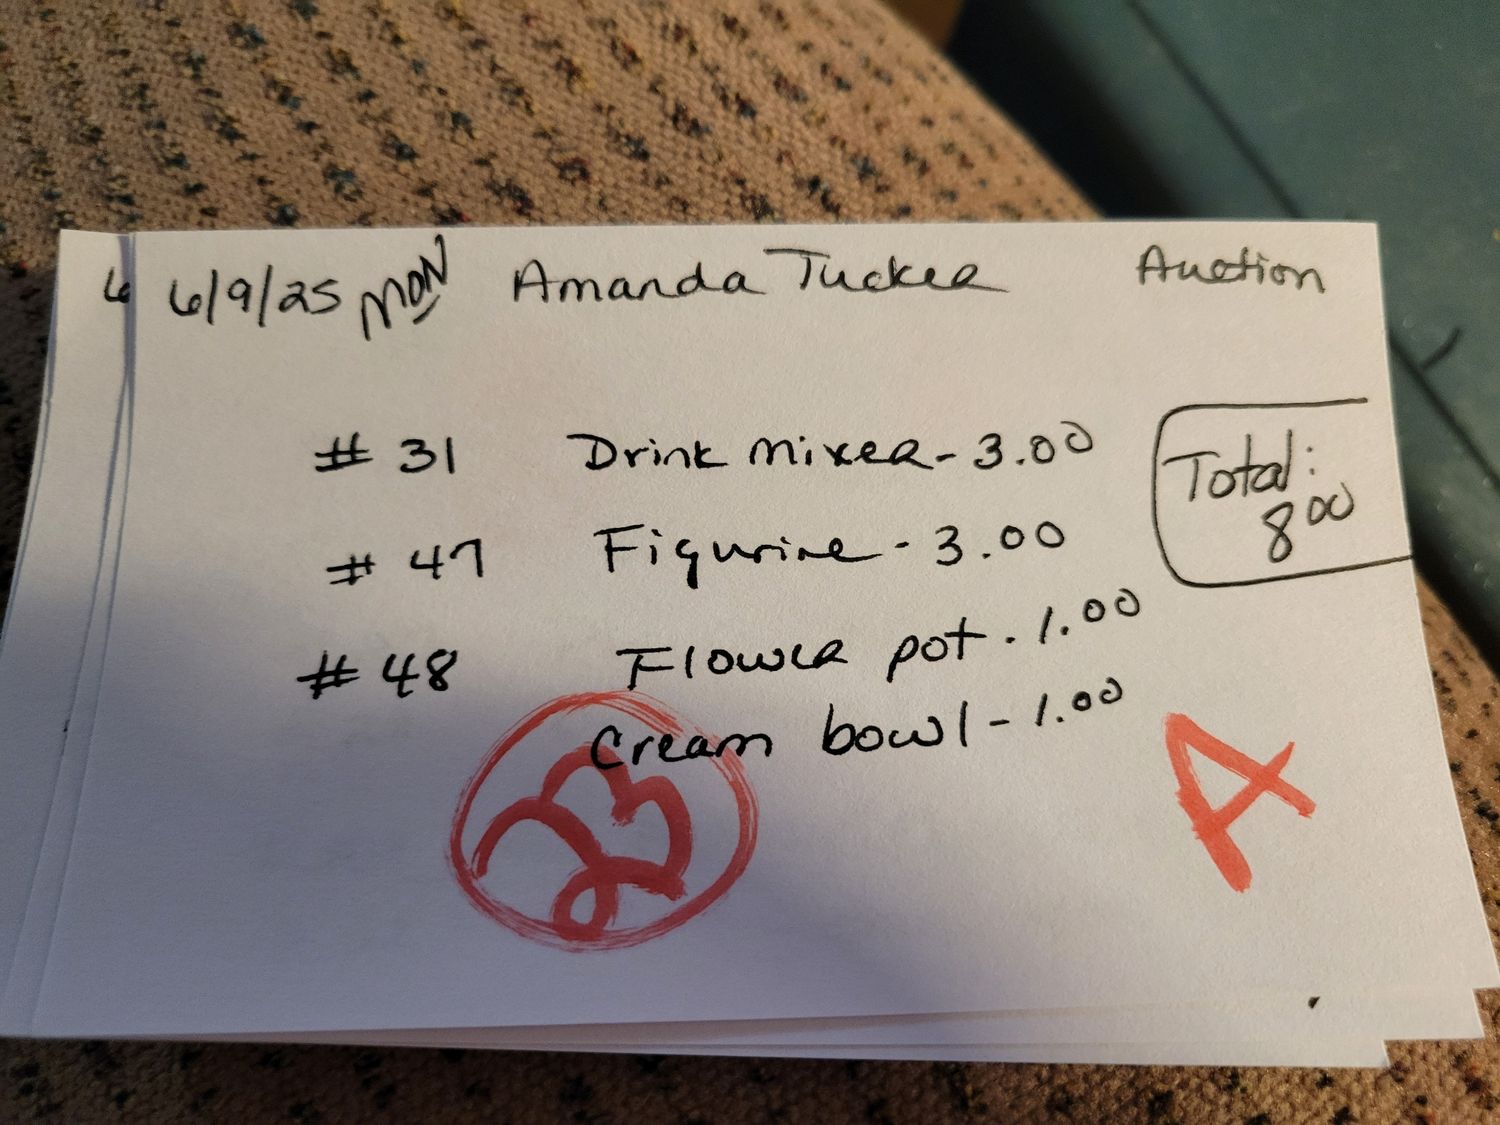 6 6/9/25 MON Amanda Tucker Auction
# 31 Drink mixer - 3.00
Total:
8 00
# 47 Figurine - 3.00
# 48 Flower pot - 1.00
Cream bowl - 1.00
23
A